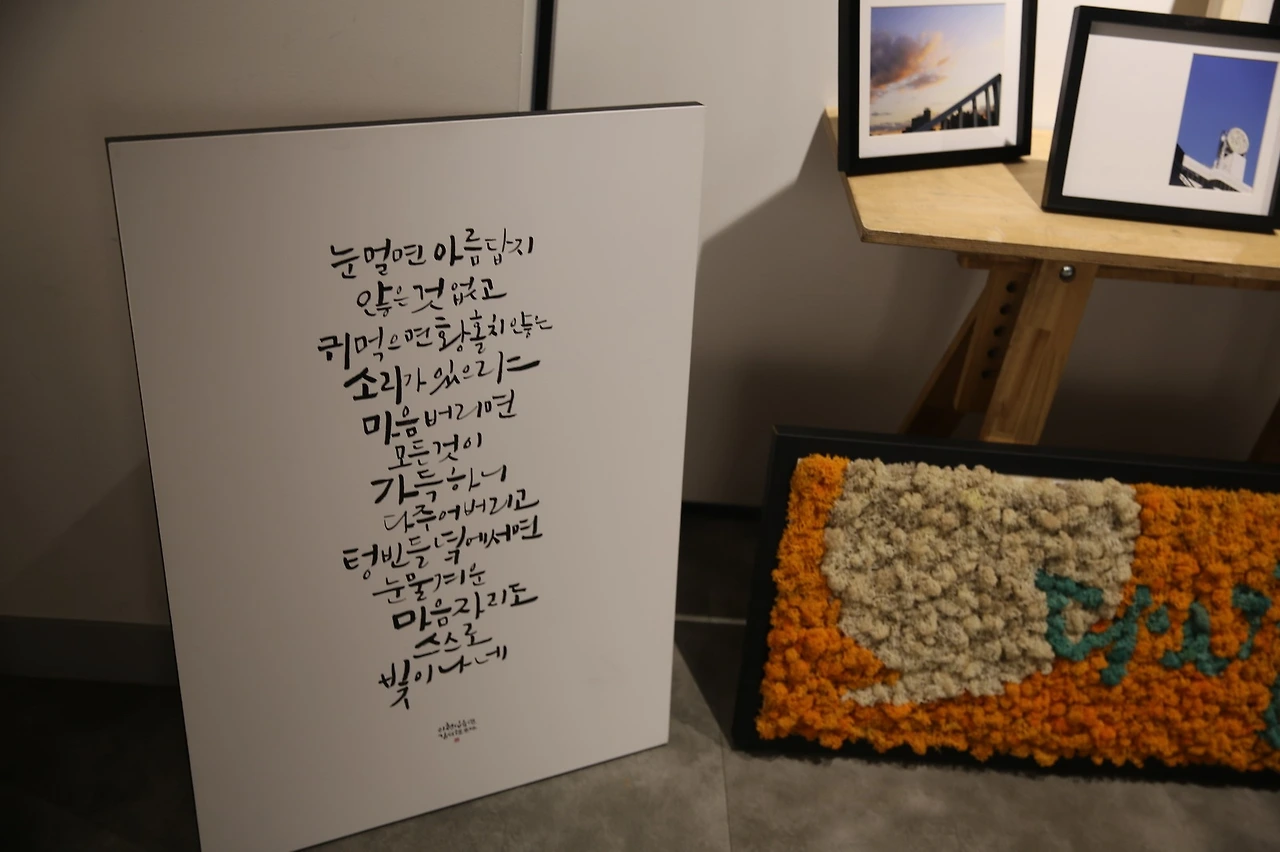 눈멀면 아름답지
않은것 없고
귀먹으면 황홀치 않은
소리가 있으랴
마음버리면
모든것이
가득하니
다주어버리고
텅빈들녘에서면
눈물겨운
마음자리도
스스로
빛이나네